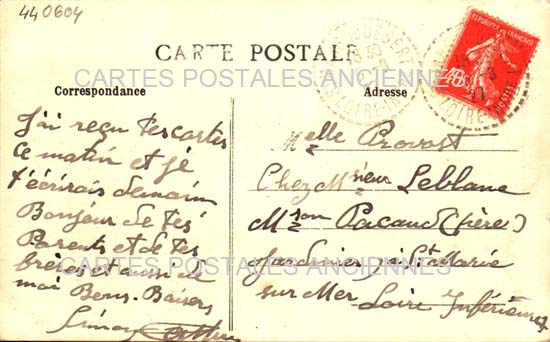 440604
CARTE POSTALE
CARTES POSTALES ANCIENNES
Correspondance
Adresse
RÉPUBLIQUE FRANÇAISE
POSTES
J'ai reçu tes cartes
ce matin et je
t'écrirais demain
Bonjour de tes
Parents et de tes
frères et aussi de
moi Bons Baisers
Melle Provost
Chez Mr Leblanc
Mson Pacaud (père)
Jardinier Ste Marie
sur Mer Loire Inférieure
CARTES POSTALES ANCIENNES